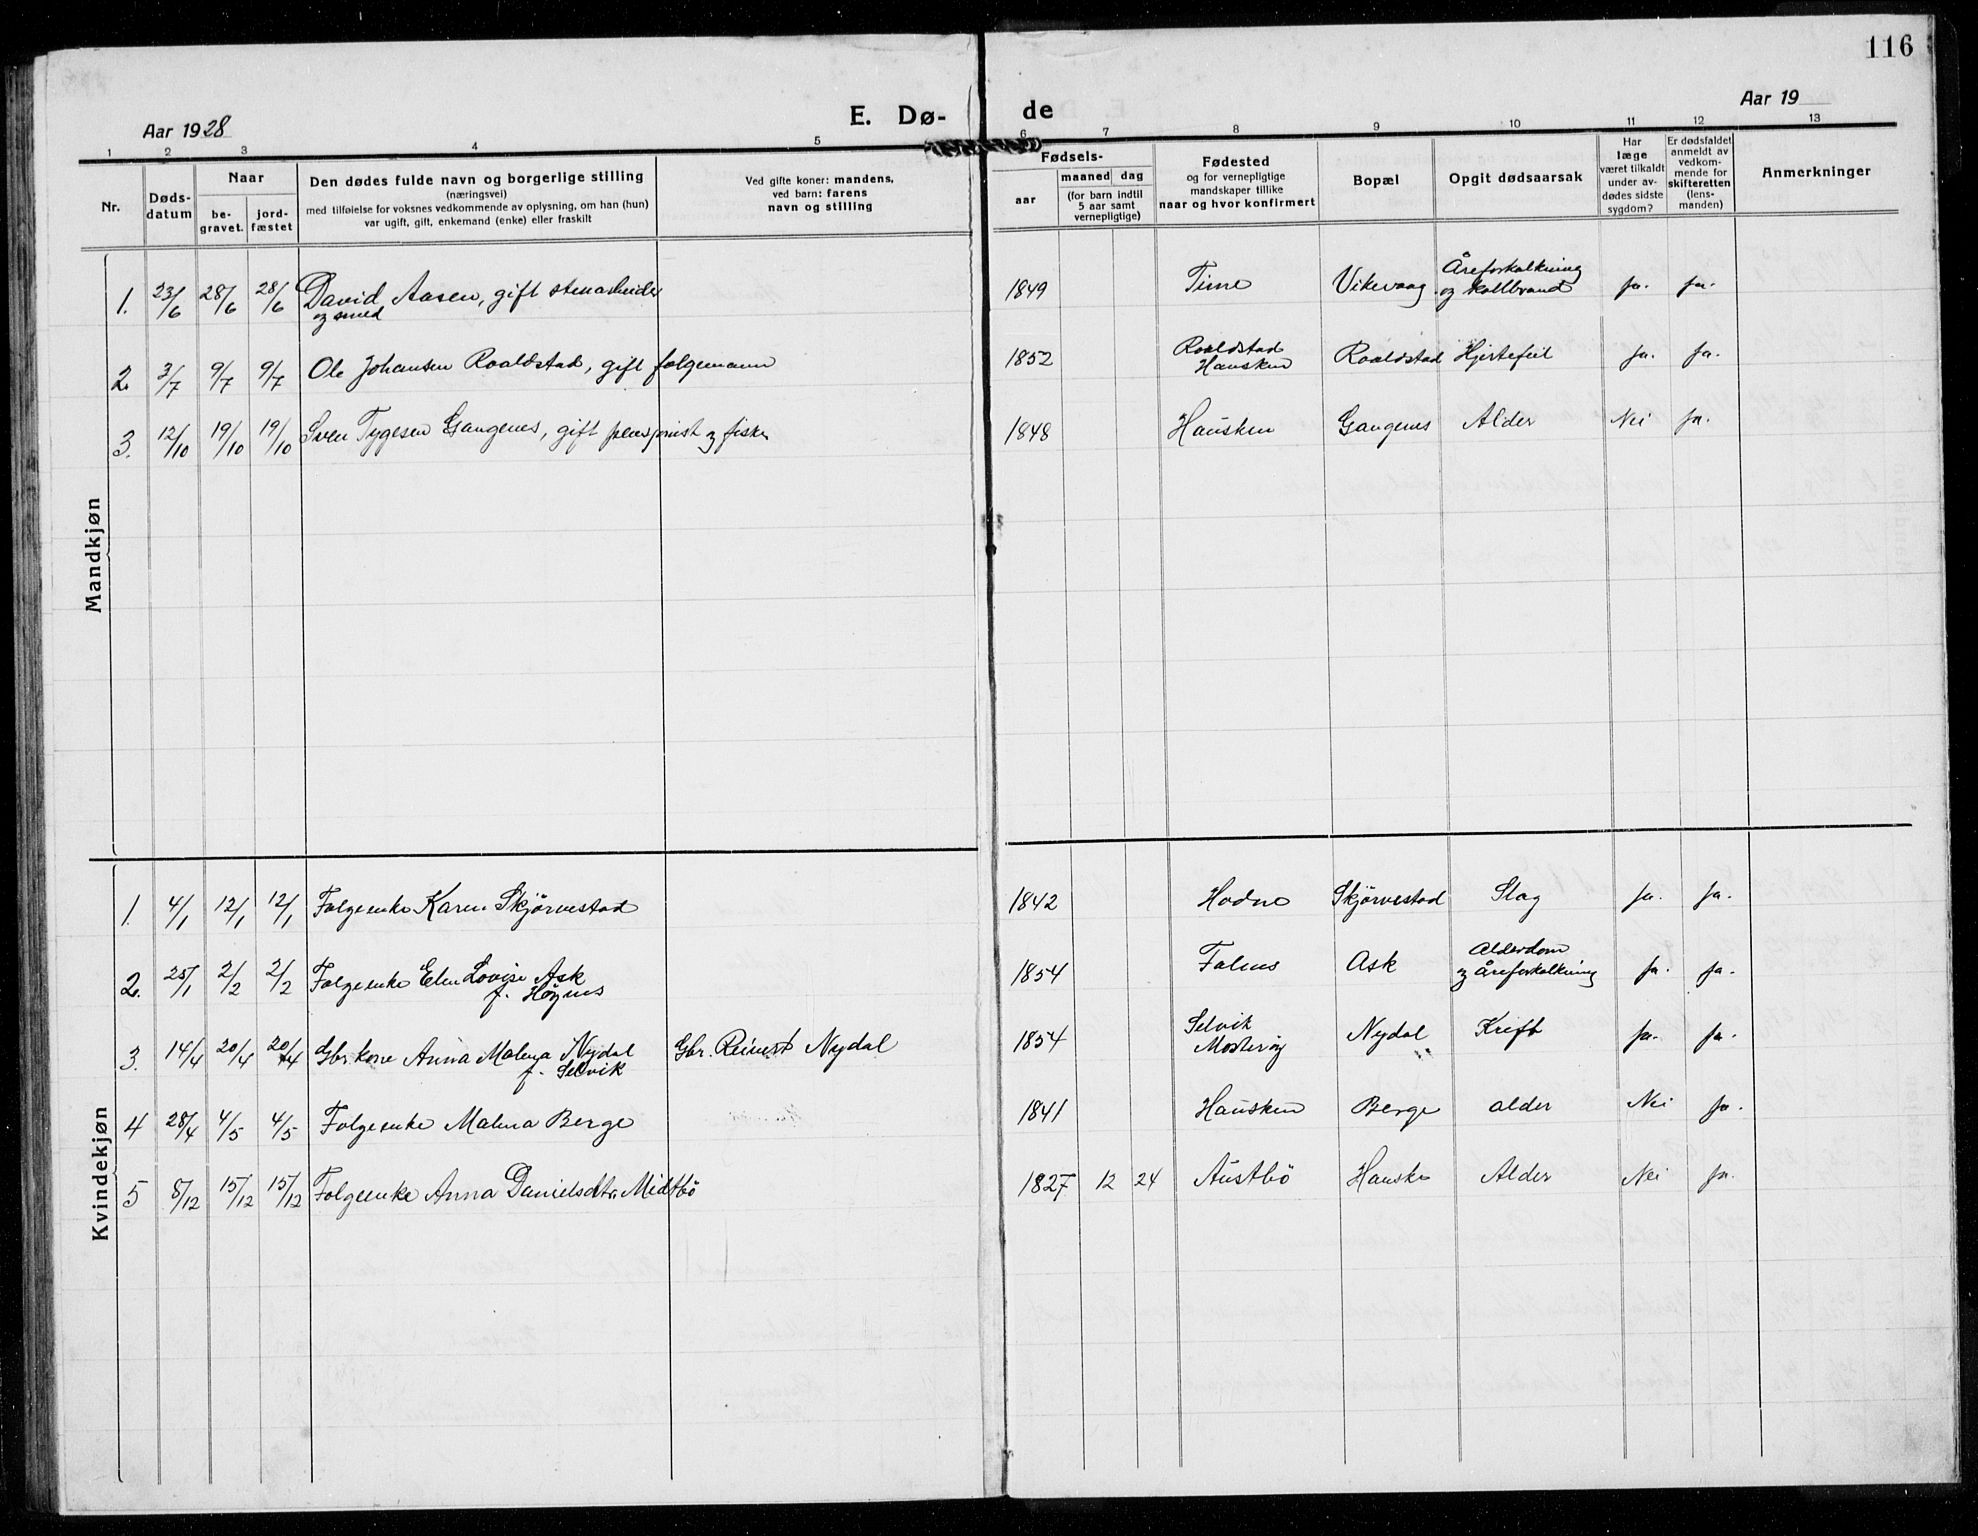 116
Aar 1928
E. Dø-
de
Aar 19
1 2 3 4 5 6 7 8 9 10 11 12 13
Nr.
Døds-
datum
Naar
be-
gravet.
jord-
fæstet
Den dødes fulde navn og borgerlige stilling
(næringsvei)
med tilføielse for voksnes vedkommende av oplysning, om han (hun)
var ugift, gift, enkemand (enke) eller fraskilt
Ved gifte koner: mandens,
ved barn: farens
navn og stilling
Fødsels-
aar
maaned dag
(for barn indtil
5 aar samt
vernepligtige)
Fødested
og for vernepligtige
mandskaper tillike
naar og hvor konfirmert
Bopæl
Opgit dødsaarsak
Har
læge
været tilkaldt
under av-
dødes sidste
sygdom?
Er dødsfaldet
anmeldt av
vedkom-
mende for
skifteretten
(lens-
manden)
Anmerkninger
Mandkjøn
1. 23/6 28/6 28/6 David Aasen, gift stenarbeider 1849 Time Vikevaag Åreforkalkning ja. ja.
og smed og koldbrand
2. 3/7 9/7 9/7 Ole Johansen Roaldstad, gift følgemann 1852 Roaldstad Roaldstad Hjertefeil ja. ja.
Hausken
3. 12/10 19/10 19/10 Sven Tygesen Gangenes, gift pensjonist og fisker 1848 Hausken Gangenes Alder Nei ja.
Kvindekjøn
1. 4/1 12/1 12/1 Følgeenke Karen Skjørvestad 1842 Hodne Skjørvestad Slag ja. ja.
2. 25/1 2/2 2/2 Følgeenke Elen Lovise Ask 1854 Ask Alderdom ja. ja.
f. Høynes og åreforkalkning
3. 14/4 20/4 20/4 Gbr. kone Anna Malena Nydal Gbr. Reinert Nydal 1854 Selvik Nydal Kreft ja. ja.
f. Selvik Mosterøy
4 28/4 4/5 4/5 Følgeenke Malena Berge 1841 Hausken Berge alder Nei ja.
5 8/12 15/12 15/12 Følgeenke Anna Danielsdtr. Midtbö 1827 12 24 Austbö Hauske Alder Nei ja.